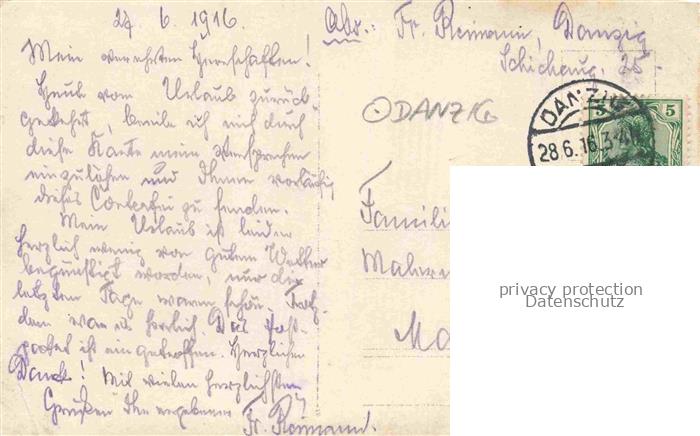 27. 6. 1916.
Mein verehrten Herrschaften!
Heute vom Urlaub zurück-
gekehrt, beeile ich mich durch
diese Karte mein Versprechen
einzulösen und Ihnen vorläufig
dieses Conterfei zu senden.
Mein Urlaub ist leider
herzlich wenig von gutem Wetter
begünstigt worden, nur die
letzten Tage waren schön. Trotz-
dem war es herrlich. Das Post-
packet ist eingetroffen. Herzlichen
Dank! Mit vielen herzlichsten
Grüßen Ihr ergebener
Fr. Reimann.
Abs.: Fr. Reimann, Danzig
Schichaug. 25
DANZIG
DANZIG
28.6.16.3-4
5 5
Famili
Maler
Ma
privacy protection
Datenschutz